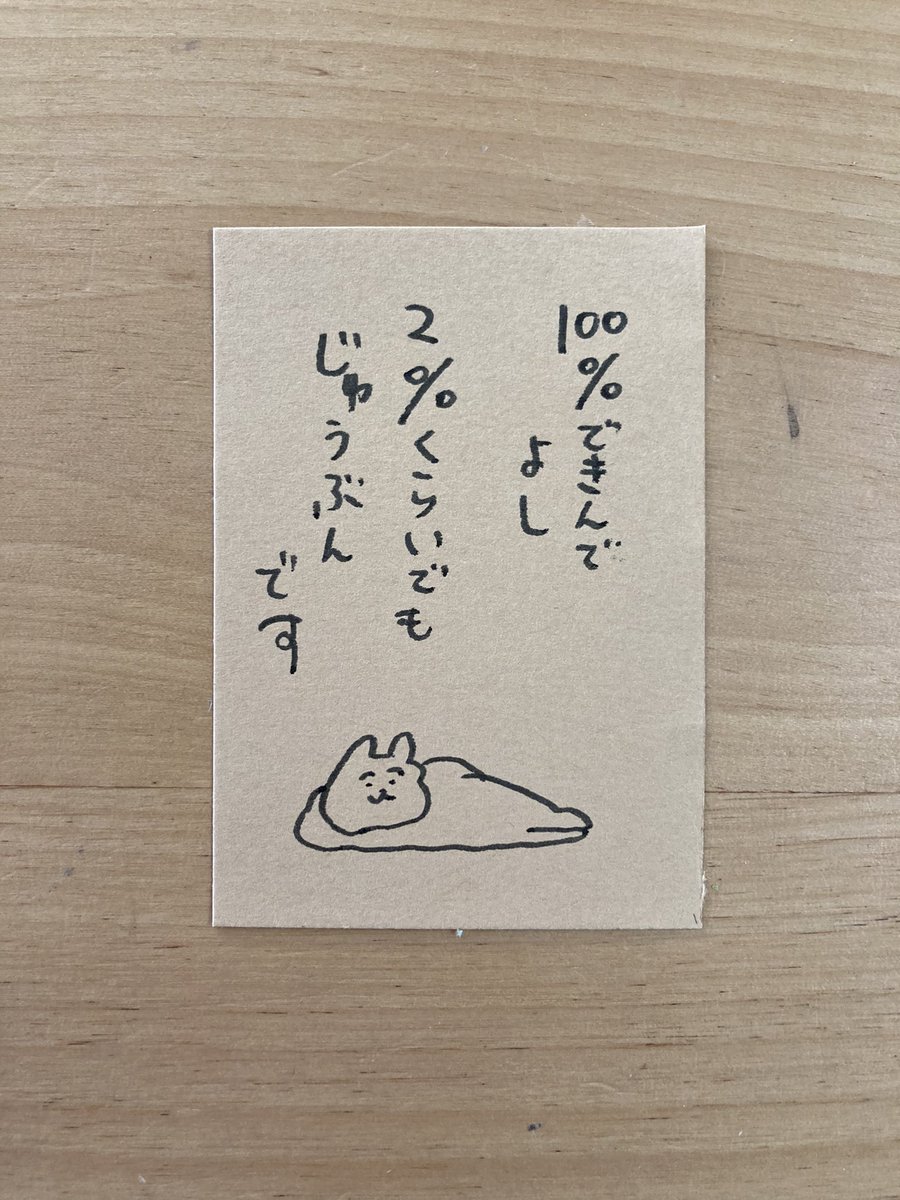 100%できんで
よし
2%くらいでも
じゅうぶん
です